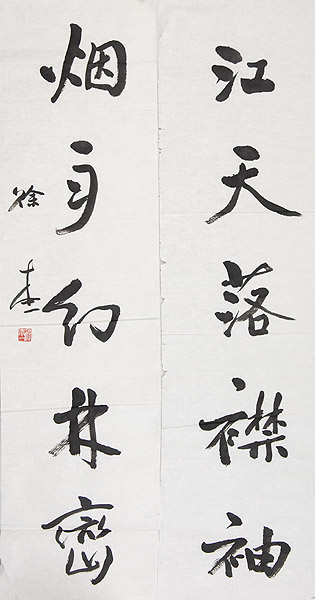 江天落襟袖
烟幻林峦
徐杰